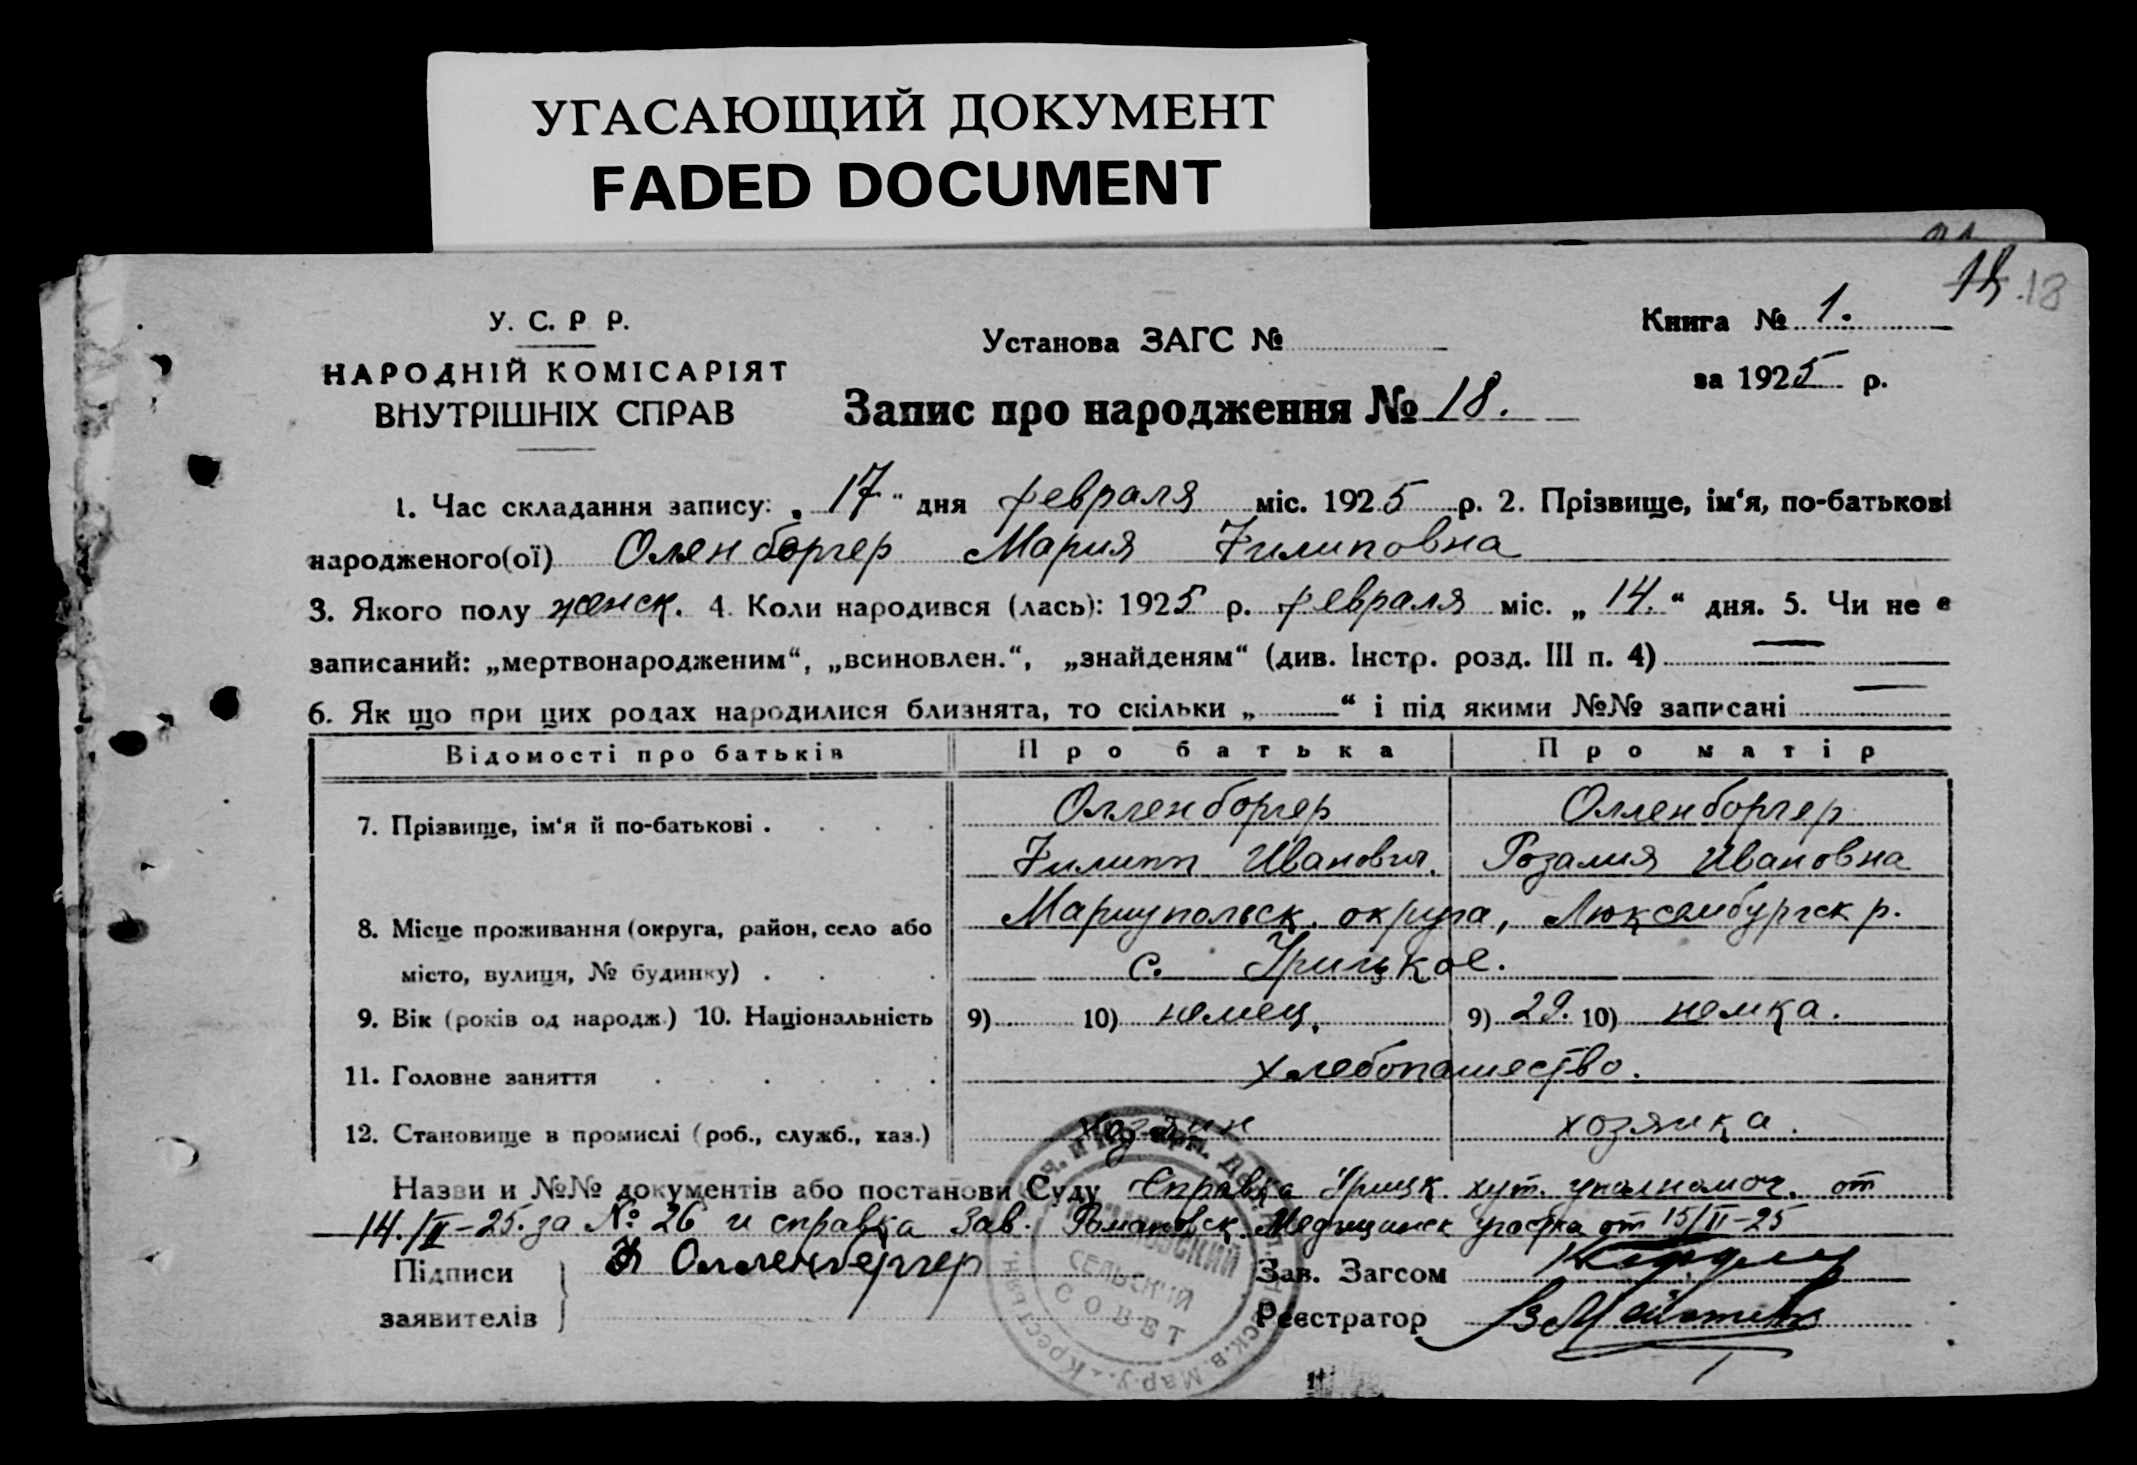 УГАСАЮЩИЙ ДОКУМЕНТ
FADED DOCUMENT
18
У. С. Р Р.
НАРОДНІЙ КОМІСАРІЯТ
ВНУТРІШНІХ СПРАВ
Установа ЗАГС №
Запис про народження № 18.
Книга № 1.
за 1925 р.
1. Час складання запису: „ 17 “ дня февраля міс. 1925 р. 2. Прізвище, ім‘я, по-батькові
народженого(ої) Оленборгер Мария Филиповна
3. Якого полу женск. 4. Коли народився (лась): 1925 р. февраля міс. „ 14. “ дня. 5. Чи не є
записаний: „мертвонародженим“, „всиновлен.“, „знайденям“ (див. Інстр. розд. III п. 4) —
6. Як що при цих родах народилися близнята, то скільки „ “ і під якими №№ записані —
Відомості про батьків Про батька Про матір
7. Прізвище, ім‘я й по-батькові . Олленборгер Олленборгер
Филипп Иванович. Розалия Ивановна
8. Місце проживання (округа, район, село або Мариупольск. округа, Люксембургск р.
місто, вулиця, № будинку) . с. Урицкое.
9. Вік (років од народж.) 10. Національність 9) 10) немец. 9) 29. 10) немка.
11. Головне заняття хлебопашество.
12. Становище в промислі (роб., служб., хаз.) хозяин хозяйка.
Назви и №№ документів або постанови Суду Справка Урицк. хут. уполномоч. от
14./II-25. за № 26 и справка Зав. Романовск. Медицинск участка от 15/II-25
Підписи Олленбергер Зав. Загсом
заявителів Реєстратор
СЕЛЬСКИЙ
СОВЕТ